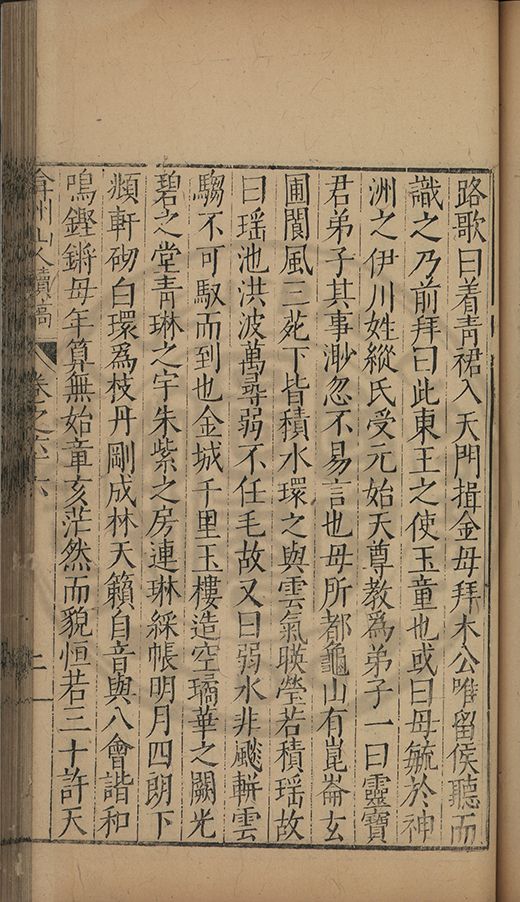 路歌曰着青裙入天門揖金母拜木公唯留侯聽而
識之乃前拜曰此東王之使玉童也或曰母毓於神
洲之伊川姓緱氏受元始天尊教爲弟子一曰靈寶
君弟子其事渺忽不易言也母所都龜山有崑崙玄
圃閬風二苑下皆積水環之與雲氣暎瑩若積瑶故
曰瑶池洪波萬尋弱不任毛故又曰弱水非飈軿雲
騶不可馭而到也金城千里玉樓造空璚華之闕光
碧之堂青琳之宇朱紫之房連琳綵帳明月四朗下
頫軒砌白環爲枝丹剛成林天籟自音與八會諧和
鳴鏗鏘母年算無始章亥茫然而貌恒若三十許天
弇州山人續稿 卷之六十六